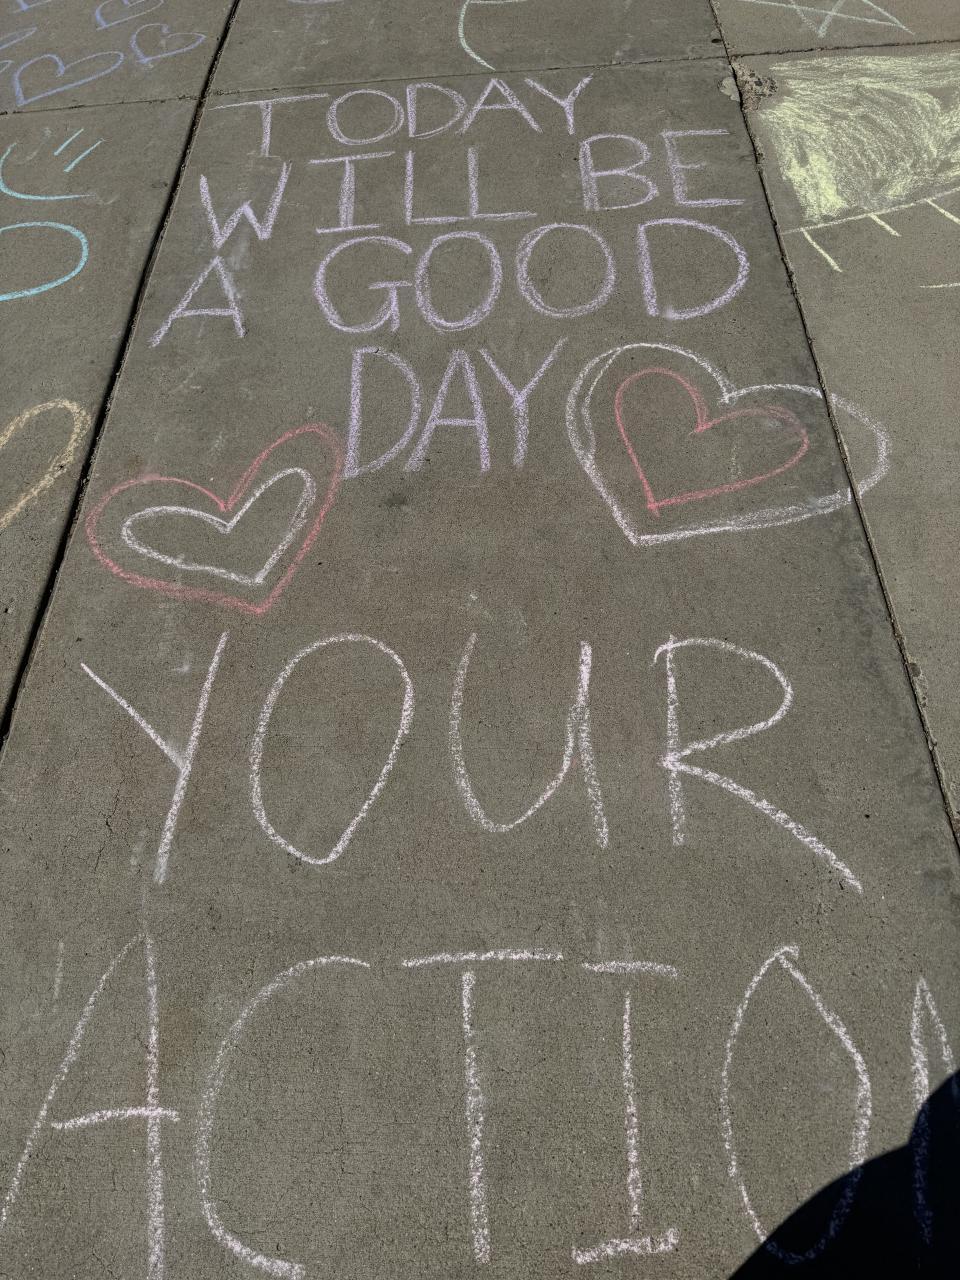 TODAY
WILL BE
A GOOD
DAY
YOUR
ACTION